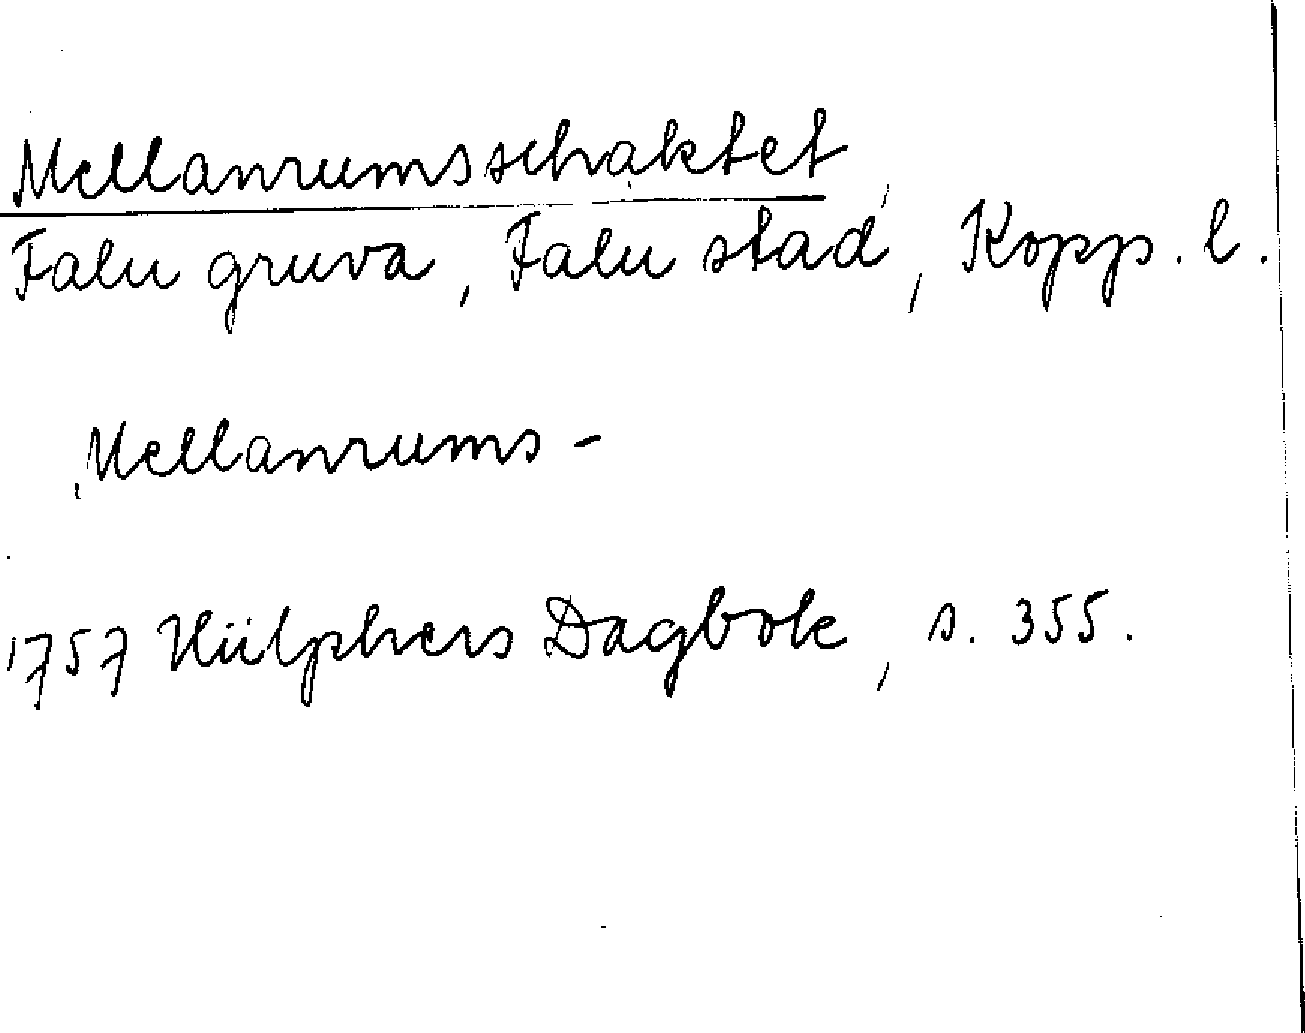 Mellanrumsschaktet
Falu gruva, Falu stad, Kopp. l.
Mellanrums-
1757 Hülphers Dagbok, s. 355.